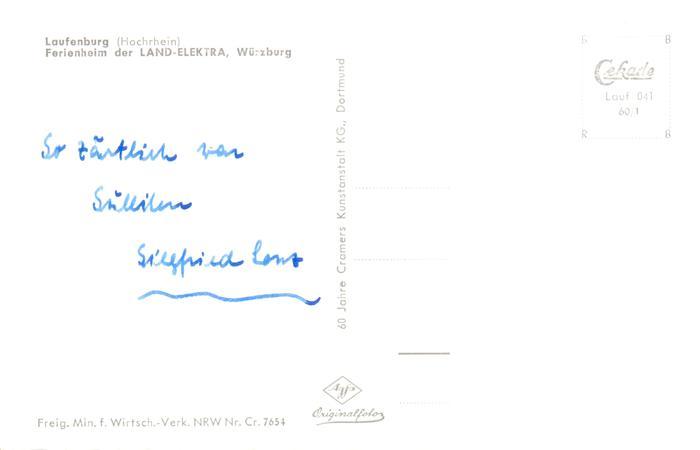 Laufenburg (Hochrhein)
Ferienheim der LAND-ELEKTRA, Würzburg
So zärtlich war
Suleyken
Siegfried Lenz
Freig. Min. f. Wirtsch.-Verk. NRW Nr. Cr. 7654
60 Jahre Cramers Kunstanstalt KG., Dortmund
Agfa
Originalfoto
R B
Cekade
Lauf 041
60/1
R R